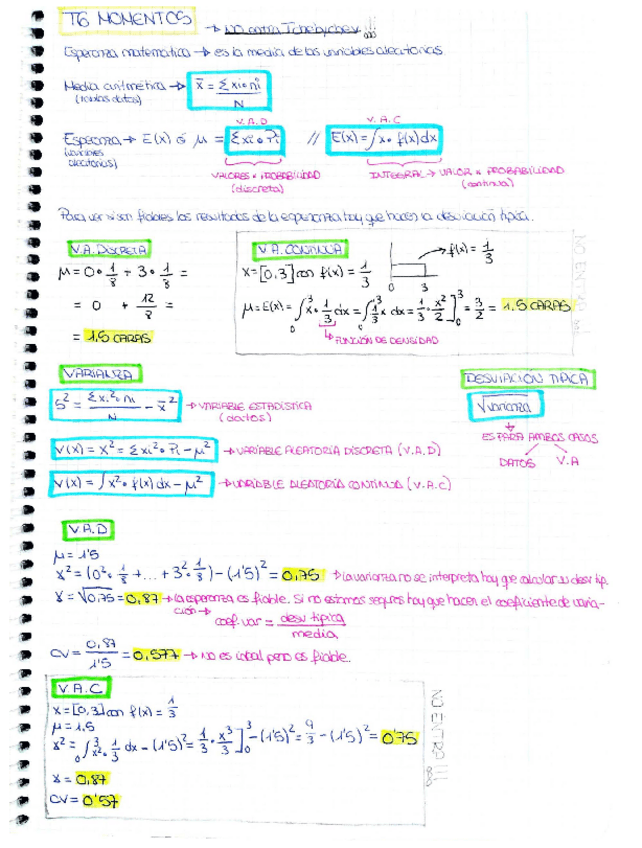 T6 MOMENTOS → No entra Tchebychev !!!
Esperanza matemática → es la media de las variables aleatorias
Media aritmética → x̄ = Σxi·ni / N
(varios datos)
V.A.D V.A.C
Esperanza → E(x) ó μ = Σxi·Pi // E(x) = ∫x·f(x)dx
(variables aleatorias)
VALORES × PROBABILIDAD INTEGRAL → VALOR × PROBABILIDAD
(discreta) (continua)
Para ver si son fiables los resultados de la esperanza hay que hacer la desviación típica.
V.A. DISCRETA
μ = 0·1/8 + 3·1/8 =
= 0 + 12/8 =
= 1.5 CARAS
V.A. CONTINUA
x = [0,3] con f(x) = 1/3
f(x) = 1/3
0 3
μ = E(x) = ∫₀³ x·1/3 dx = ∫₀³ 1/3 x dx = 1/3·x²/2]₀³ = 3/2 = 1.5 CARAS
↳ FUNCIÓN DE DENSIDAD
NO ENTRA !!!
VARIANZA
S² = Σxi²·ni / N - x̄² → VARIABLE ESTADÍSTICA
(datos)
V(x) = x² = Σxi²·Pi - μ² → VARIABLE ALEATORIA DISCRETA (V.A.D)
V(x) = ∫x²·f(x)dx - μ² → VARIABLE ALEATORIA CONTINUA (V.A.C)
DESVIACIÓN TÍPICA
√varianza
ES PARA AMBOS CASOS
DATOS V.A
V.A.D
μ = 1'5
γ² = (0²·1/8 + ... + 3²·1/8) - (1'5)² = 0,75 → La varianza no se interpreta hay que calcular su desv tip.
γ = √0,75 = 0,87 → La esperanza es fiable. Si no estamos seguros hay que hacer el coeficiente de varia-
ción → coef.var = desv típica / media
CV = 0,87 / 1'5 = 0,577 → No es ideal pero es fiable.
V.A.C
x = [0,3] con f(x) = 1/3
μ = 1.5
γ² = ∫₀³ x²·1/3 dx - (1'5)² = 1/3·x³/3]₀³ - (1'5)² = 9/3 - (1'5)² = 0'75
γ = 0,87
CV = 0'57
NO ENTRA !!!